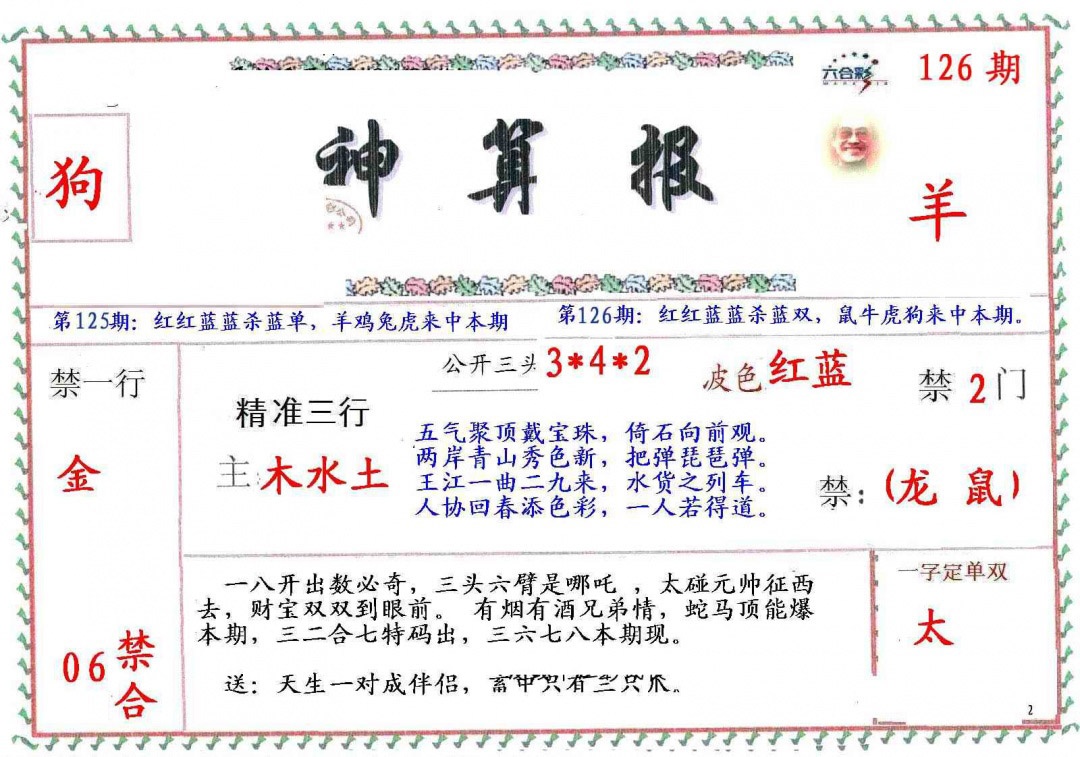 六合彩
126 期
狗
神算报
羊
第125期：红红蓝蓝杀蓝单，羊鸡兔虎来中本期
第126期：红红蓝蓝杀蓝双，鼠牛虎狗来中本期。
禁一行
金
06 禁合
精准三行
主木水土
公开三头 3*4*2
波色 红蓝
五气聚顶戴宝珠，倚石向前观。
两岸青山秀色新，把弹琵琶弹。
王江一曲二九来，水货之列车。
人协回春添色彩，一人若得道。
禁 2 门
禁：(龙 鼠)
一八开出数必奇，三头六臂是哪吒 ，太碰元帅征西
去，财宝双双到眼前。 有烟有酒兄弟情，蛇马顶能爆
本期，三二合七特码出，三六七八本期现。
送：天生一对成伴侣，
一字定单双
太
2